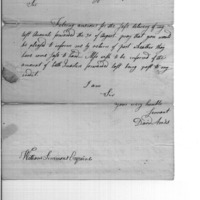 Sir
Feeling anxious for the safe delivery of my
last Accounts forwarded the 20 of August pray that you would
be pleased to inform me by return of post whether they
have come safe to hand. Also wish to be informed if the
amount of both Quarters forwarded last being past to my
credit
I am
Sir
your very humble
Servant
David
William Esquire